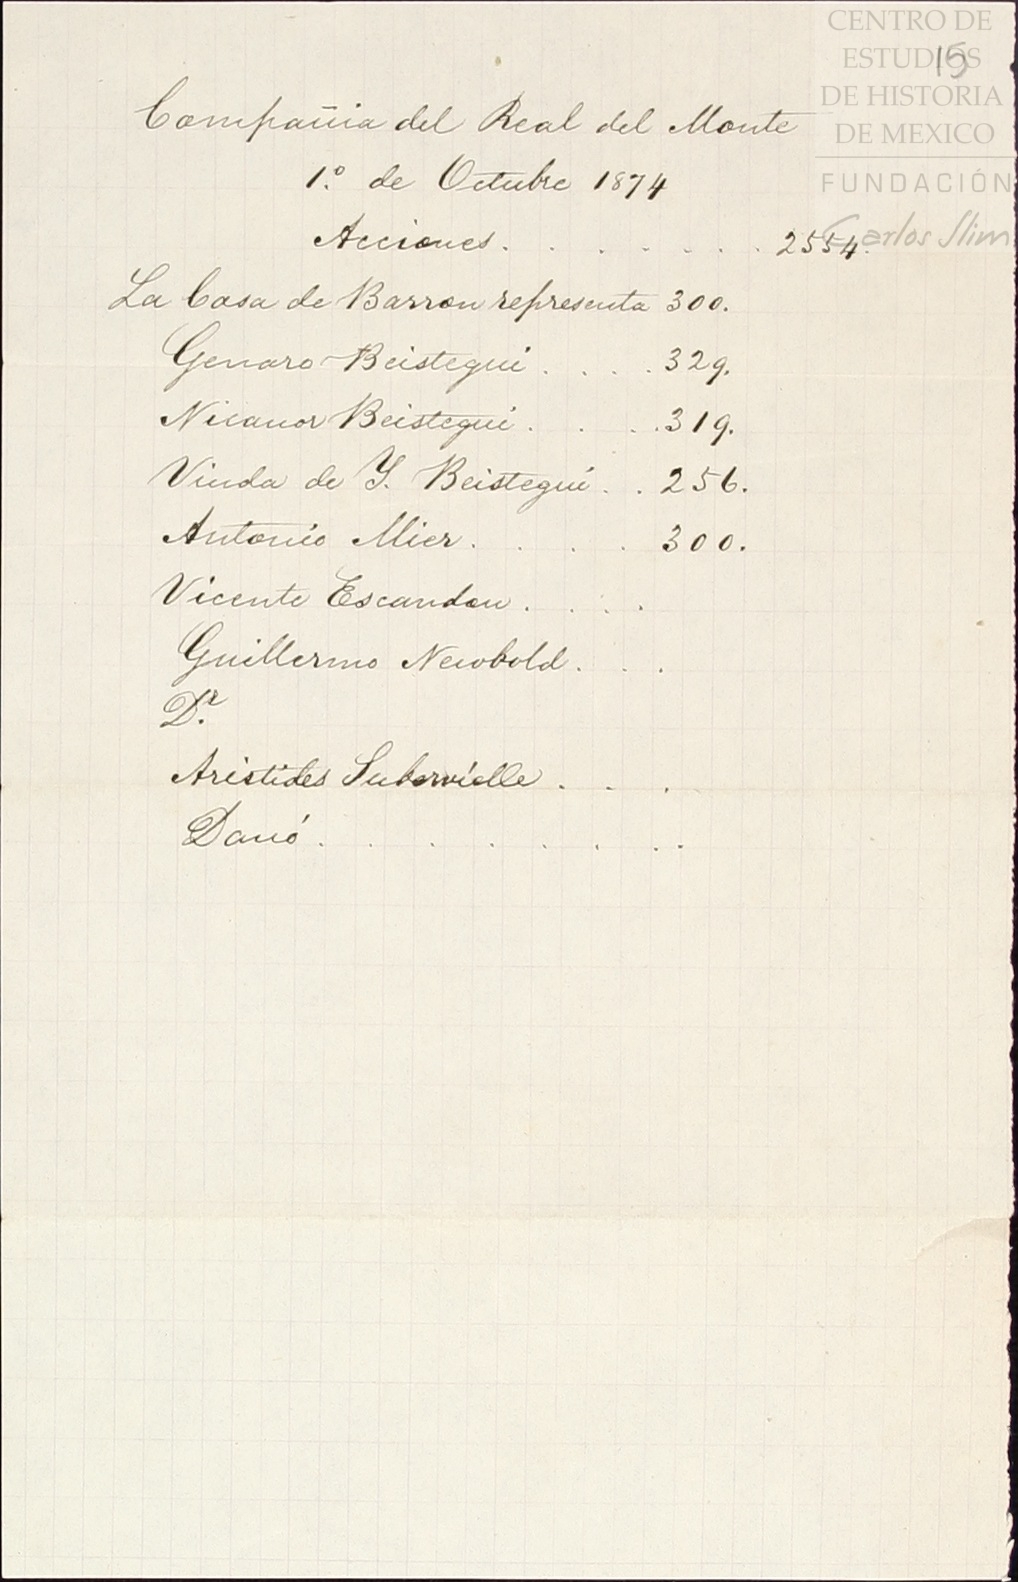 CENTRO DE
ESTUDIOS
15
DE HISTORIA
DE MEXICO
FUNDACIÓN
Carlos Slim
Compañia del Real del Monte
1.º de Octubre 1874
Acciones . . . . . . . 2554.
La Casa de Barron representa 300.
Genaro Beistegui . . . . 329.
Nicanor Beistegui . . . . 319.
Viuda de Y. Beistegui . . 256.
Antonio Mier . . . . 300.
Vicente Escandon . . . .
Guillermo Newbold . . .
D.r
Aristides Subervielle . . .
Danó . . . . . . . . .